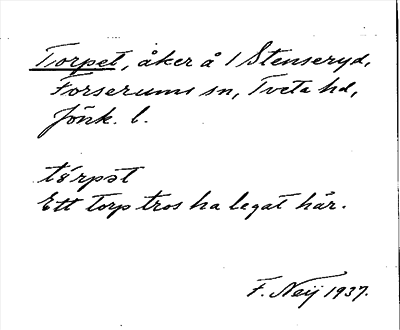 Torpet, åker å 1 Stenseryd,
Forserums sn, Tveta hd,
Jönk. l.
tårpət
Ett torp tros ha legat här.
F. Neij 1937.